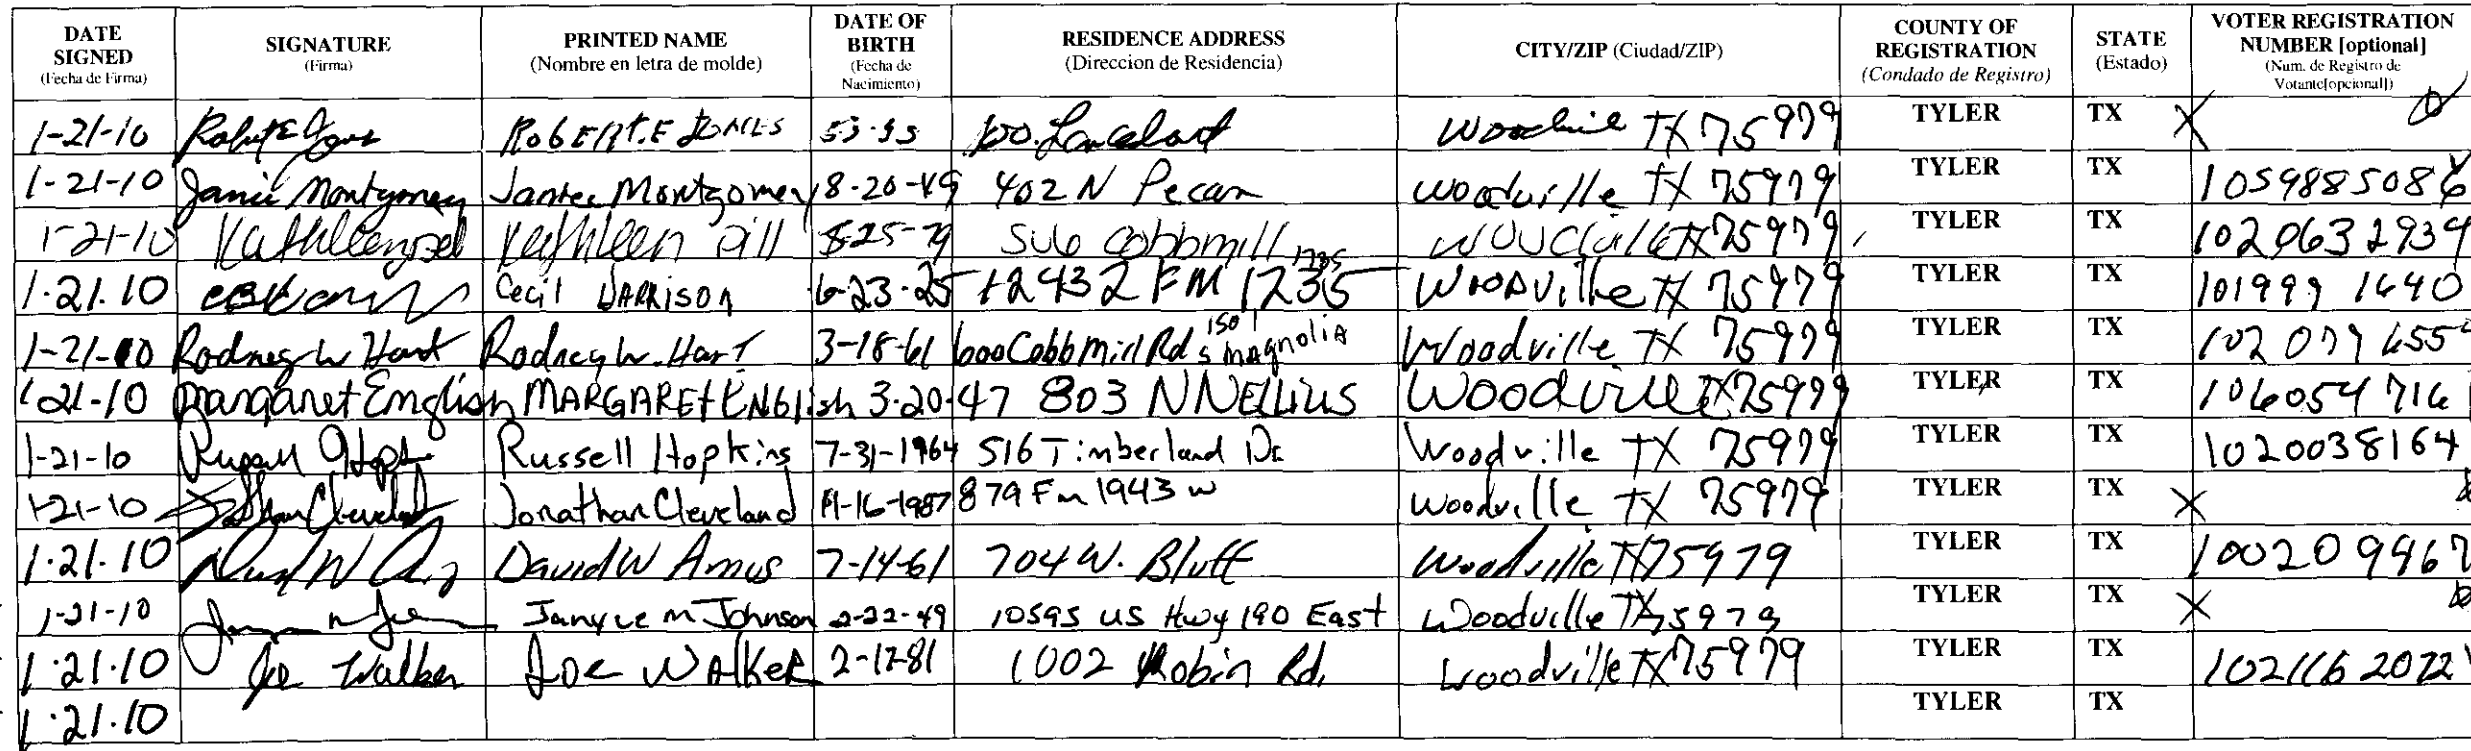 DATE SIGNED (Fecha de Firma) SIGNATURE (Firma) PRINTED NAME (Nombre en letra de molde) DATE OF BIRTH (Fecha de Nacimiento) RESIDENCE ADDRESS (Direccion de Residencia) CITY/ZIP (Ciudad/ZIP) COUNTY OF REGISTRATION (Condado de Registro) STATE (Estado) VOTER REGISTRATION NUMBER [optional] (Num. de Registro de Votante[opcional])
1-21-10 Robert E Jones RobERT.E JONES TX 75979 TYLER TX X
1-21-10 Janice Montgomery Janice Montgomery 8-20-49 402 N Pecan Woodville TX 75979 TYLER TX 1059885086
1-21-10 Kathleen Kathleen 8-25-79 cobbmill Woodville TX 75979 TYLER TX 1020632939
1.21.10 Cecil 6-23-25 12432 FM 1235 1235 WOODVille TX 75979 TYLER TX 101999 1640
1-21-10 Rodney W Hart Rodney W. Hart 3-18-61 600 Cobb Mill Rd 1501 S MAgnoliA Woodville TX 75979 TYLER TX 102079655
1-21-10 Margaret English MARGAREt ENGlish 3-20-47 803 N NELLiUS Woodville TX 75979 TYLER TX 106054716
1-21-10 Russell Hopkins 7-31-1964 516 Timberland Dr Woodville TX 75979 TYLER TX 1020038164
1-21-10 Jonathan Cleveland Jonathan Cleveland 11-16-1987 879 Fm 1943 w Woodville TX 75979 TYLER TX X
1.21.10 David W Amus 7-14-61 704 W. Bluff Woodville TX 75979 TYLER TX 100209967
1-21-10 Janyce M Johnson 2-22-49 10595 US Hwy 190 East Woodville TX 75979 TYLER TX X
1.21.10 Joe Walker JOE WAlKER 2-17-81 1002 Robin Rd. Woodville TX 75979 TYLER TX 102116 2022
1.21.10 TYLER TX